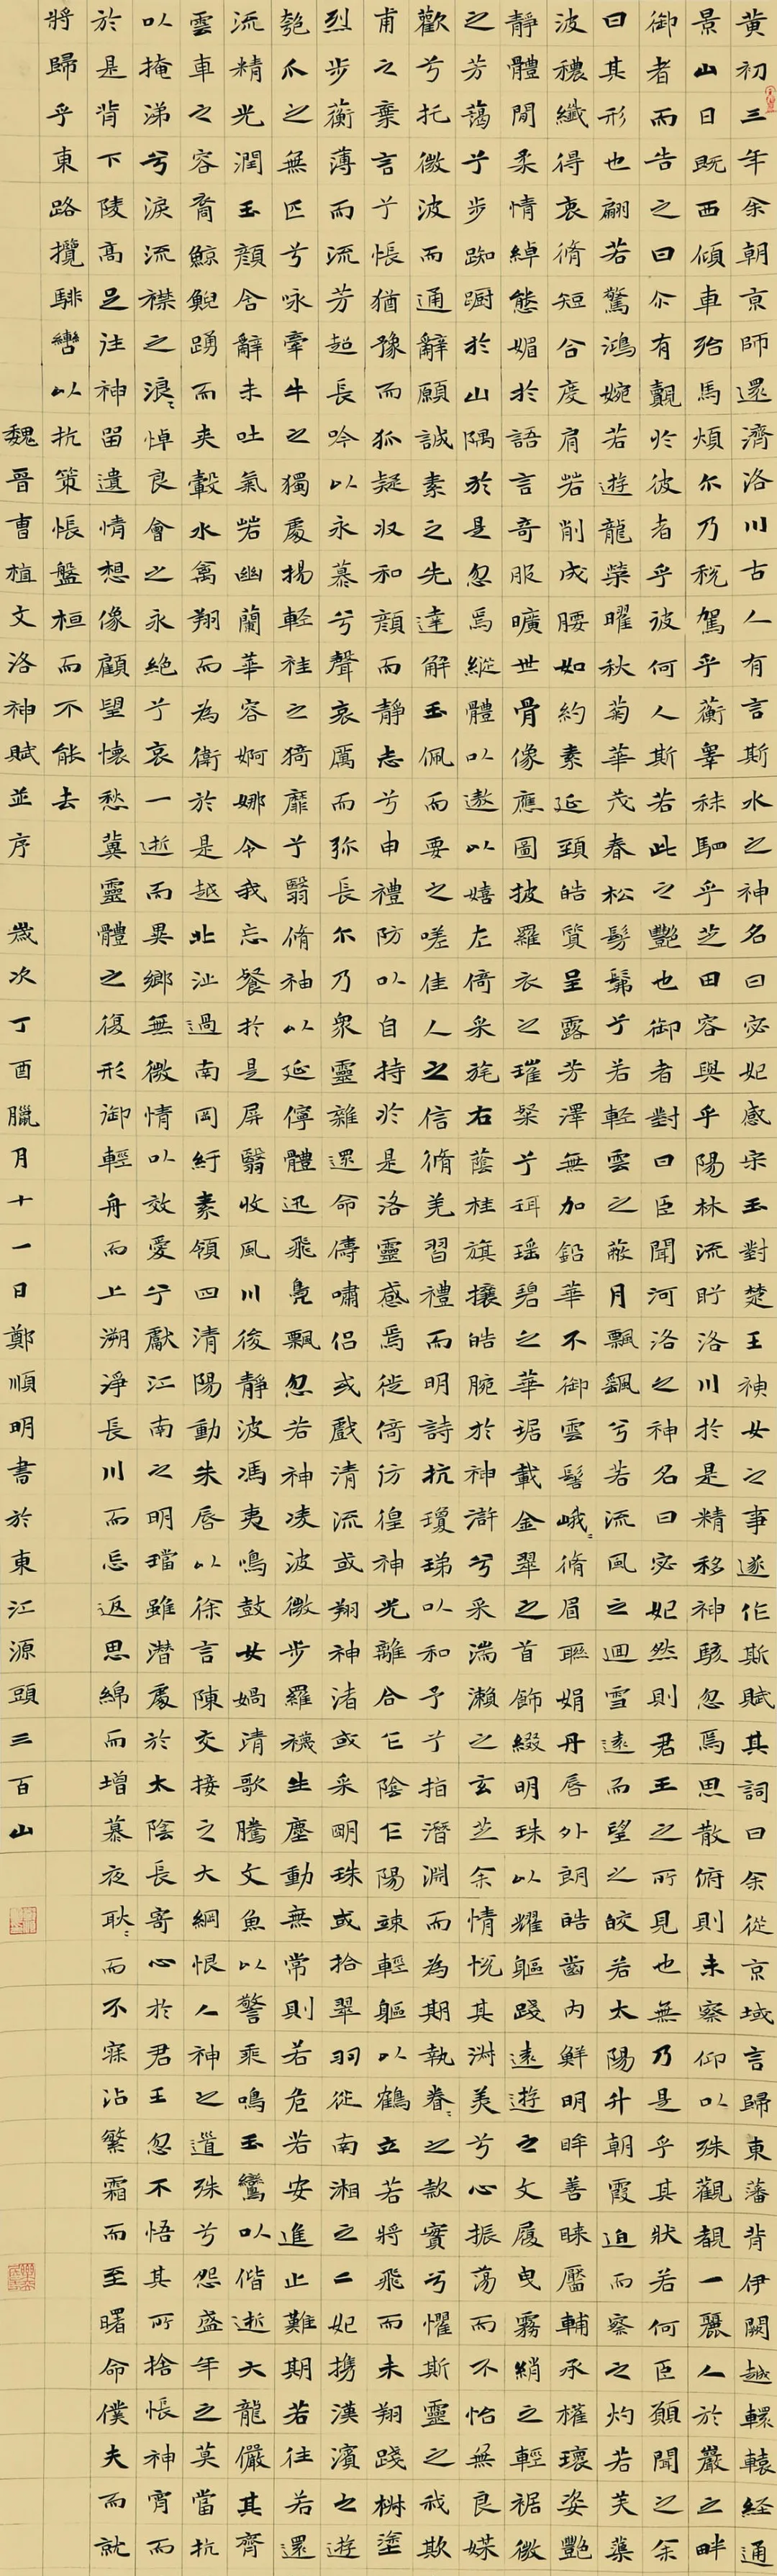 黄初三年余朝京師還濟洛川古人有言斯水之神名曰宓妃感宋玉對楚王神女之事遂作斯賦其詞曰余從京域言歸東藩背伊闕越轘轅経通
景山日既西傾車殆馬煩尓乃稅駕乎蘅皋秣駟乎芝田容與乎陽林流盱洛川於是精移神駭忽焉思散俯則未察仰以殊觀覩一麗人於巖之畔
御者而告之曰尒有覿於彼者乎彼何人斯若此之艷也御者對曰臣聞河洛之神名曰宓妃然則君王之所見也無乃是乎其狀若何臣願聞之余
曰其形也翩若驚鴻婉若遊龍榮曜秋菊華茂春松髣髴兮若輕雲之蔽月飄飖兮若流風之迴雪遠而望之皎若太陽升朝霞迫而察之灼若芙蕖
波穠纖得衷脩短合度肩若削成腰如約素延頸皓質呈露芳澤無加鉛華不御雲髻峨〻脩眉聯娟丹唇外朗皓齒內鮮明眸善睞靨輔承權瓌姿艷
靜體閒柔情綽態媚於語言奇服曠世骨像應圖披羅衣之璀粲兮珥瑶碧之華琚載金翠之首飾綴明珠以耀軀踐遠遊之文履曳霧綃之輕裾微
之芳藹兮步踟蹰於山隅於是忽焉縱體以遨以嬉左倚采旄右蔭桂旗攘皓腕於神滸兮采湍瀨之玄芝余情悅其淑美兮心振蕩而不怡無良媒
歡兮托微波而通辭願誠素之先達解玉佩而要之嗟佳人之信脩羌習禮而明詩抗瓊珶以和予兮指潛淵而為期執眷〻之款實兮懼斯靈之我欺
甫之棄言兮悵猶豫而狐疑収和顏而靜志兮申禮防以自持於是洛靈感焉徙倚彷徨神光離合乍陰乍陽竦輕軀以鶴立若將飛而未翔踐椒塗
烈步蘅薄而流芳超長吟以永慕兮聲哀厲而弥長尓乃衆靈雜還命儔嘯侶或戲清流或翔神渚或采明珠或拾翠羽從南湘之二妃携漢濱之遊
匏爪之無匹兮咏牽牛之獨處揚輕袿之猗靡兮翳脩袖以延佇體迅飛鳧飄忽若神凌波微步羅襪生塵動無常則若危若安進止難期若往若還
流精光潤玉顏含辭未吐氣若幽蘭華容婀娜令我忘餐於是屏翳收風川後靜波馮夷鳴鼓女媧清歌騰文魚以警乘鳴玉鸞以偕逝六龍儼其齊
雲車之容裔鯨鯢踴而夾轂水禽翔而為衛於是越北沚過南岡紆素領四清陽動朱唇以徐言陳交接之大綱恨人神之道殊兮怨盛年之莫當抗
以掩涕兮淚流襟之浪〻悼良會之永絕兮哀一逝而異鄉無微情以效愛兮獻江南之明璫雖潜處於太陰長寄心於君王忽不悟其所捨悵神宵而
於是背下陵高足往神留遺情想像顧望懷愁冀靈體之復形御輕舟而上溯浮長川而忘返思綿而增慕夜耿〻而不寐沾繁霜而至曙命僕夫而就
將歸乎東路攬騑轡以抗策悵盤桓而不能去
魏晉曹植文洛神賦並序 歲次丁酉臘月十一日鄭順明書於東江源頭三百山